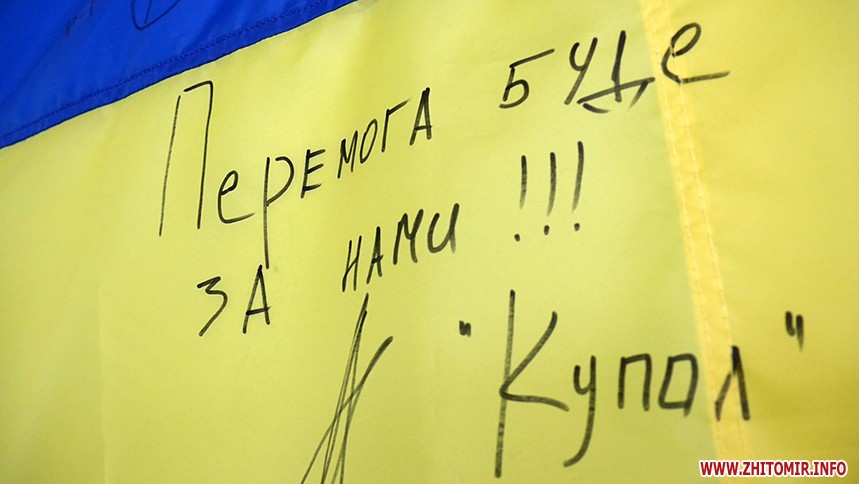 Перемога буде
за нами !!!
"Купол"
WWW.ZHITOMIR.INFO